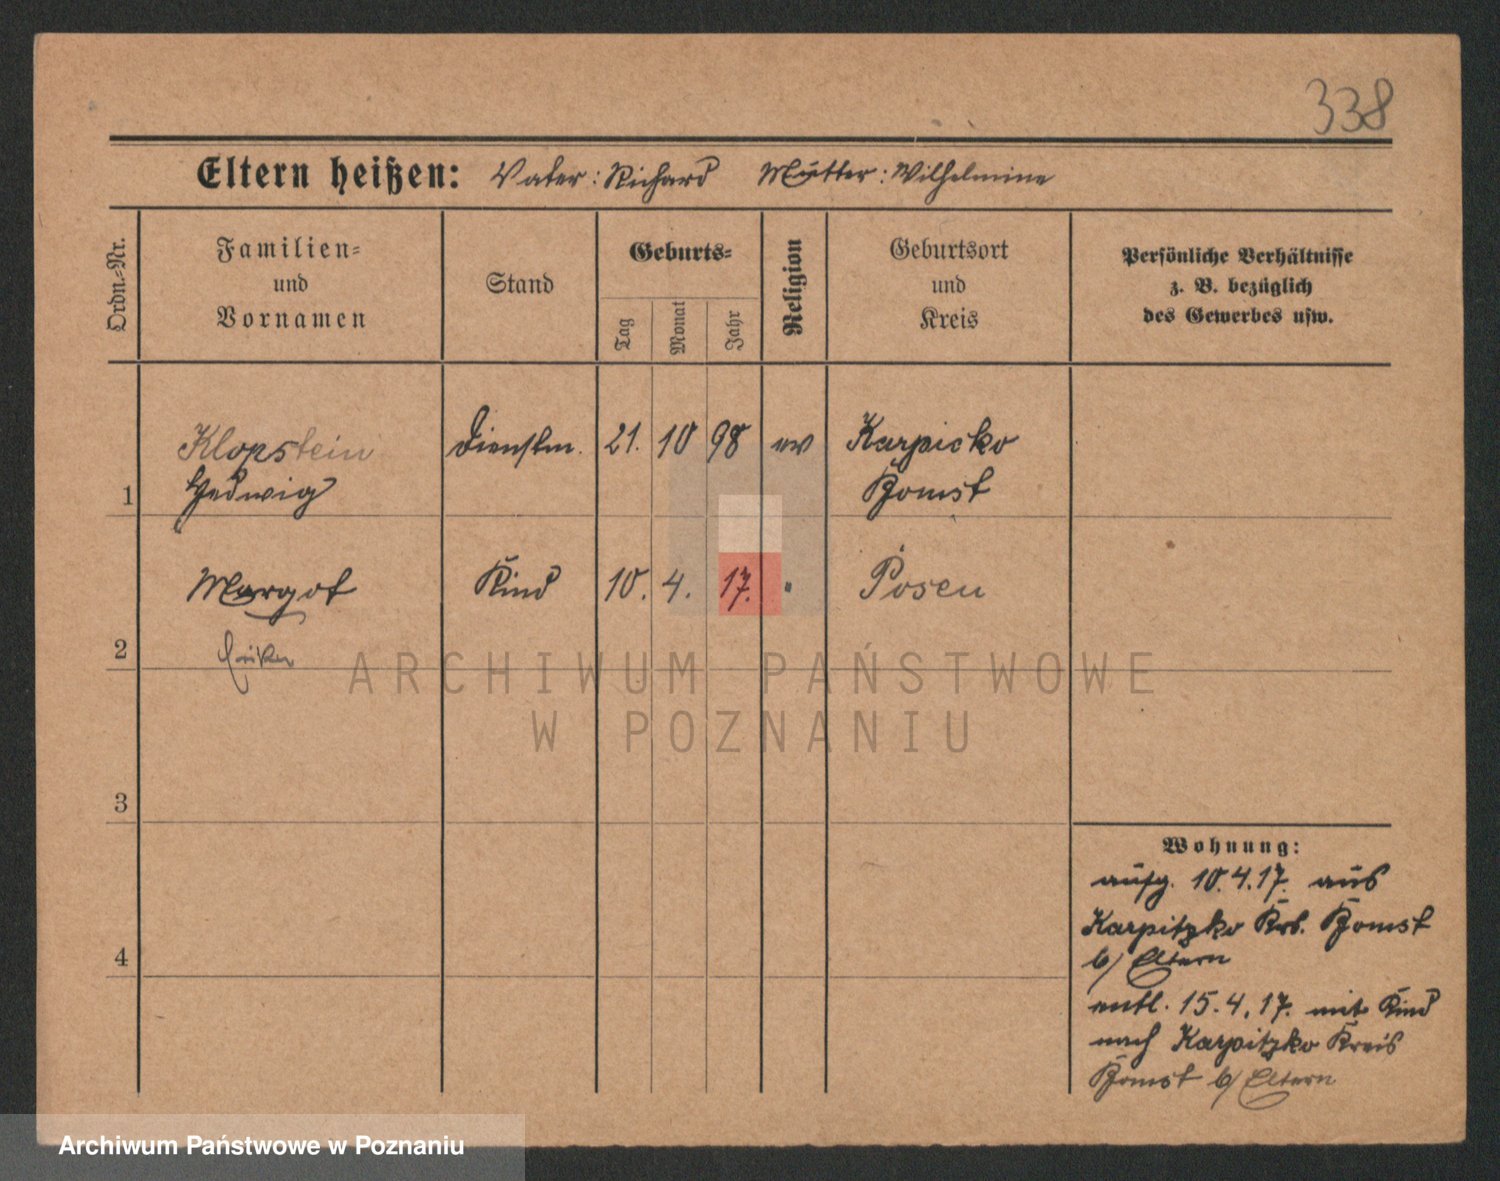 338
Eltern heißen: Vater: Richard Mutter: Wilhelmine
Ordn.-Nr.
Familien-
und
Vornamen
Stand
Geburts-
Tag
Monat
Jahr
Religion
Geburtsort
und
Kreis
Persönliche Verhältnisse
z. B. bezüglich
des Gewerbes usw.
Klopstein Dienstm. 21. 10 98 ev Karpicko
1 Hedwig Bomst
Margot Kind 10. 4. 17. " Posen
2
3
4
Wohnung:
aufg. 10.4.17. aus
Karpitzko Krs. Bomst
b/ Eltern
entl. 15.4.17. mit Kind
nach Karpitzko Kreis
Bomst b/ Eltern
ARCHIWUM PAŃSTWOWE
W POZNANIU
Archiwum Państwowe w Poznaniu